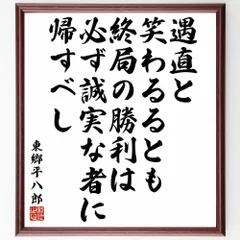 遇直と
笑わるるとも
終局の勝利は
必ず誠実な者に
帰すべし
東郷平八郎